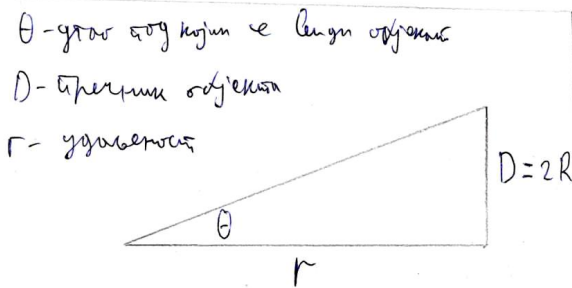 θ - угао под којим се види објекат
D - пречник објекта
r - удаљеност
D = 2R
θ
r